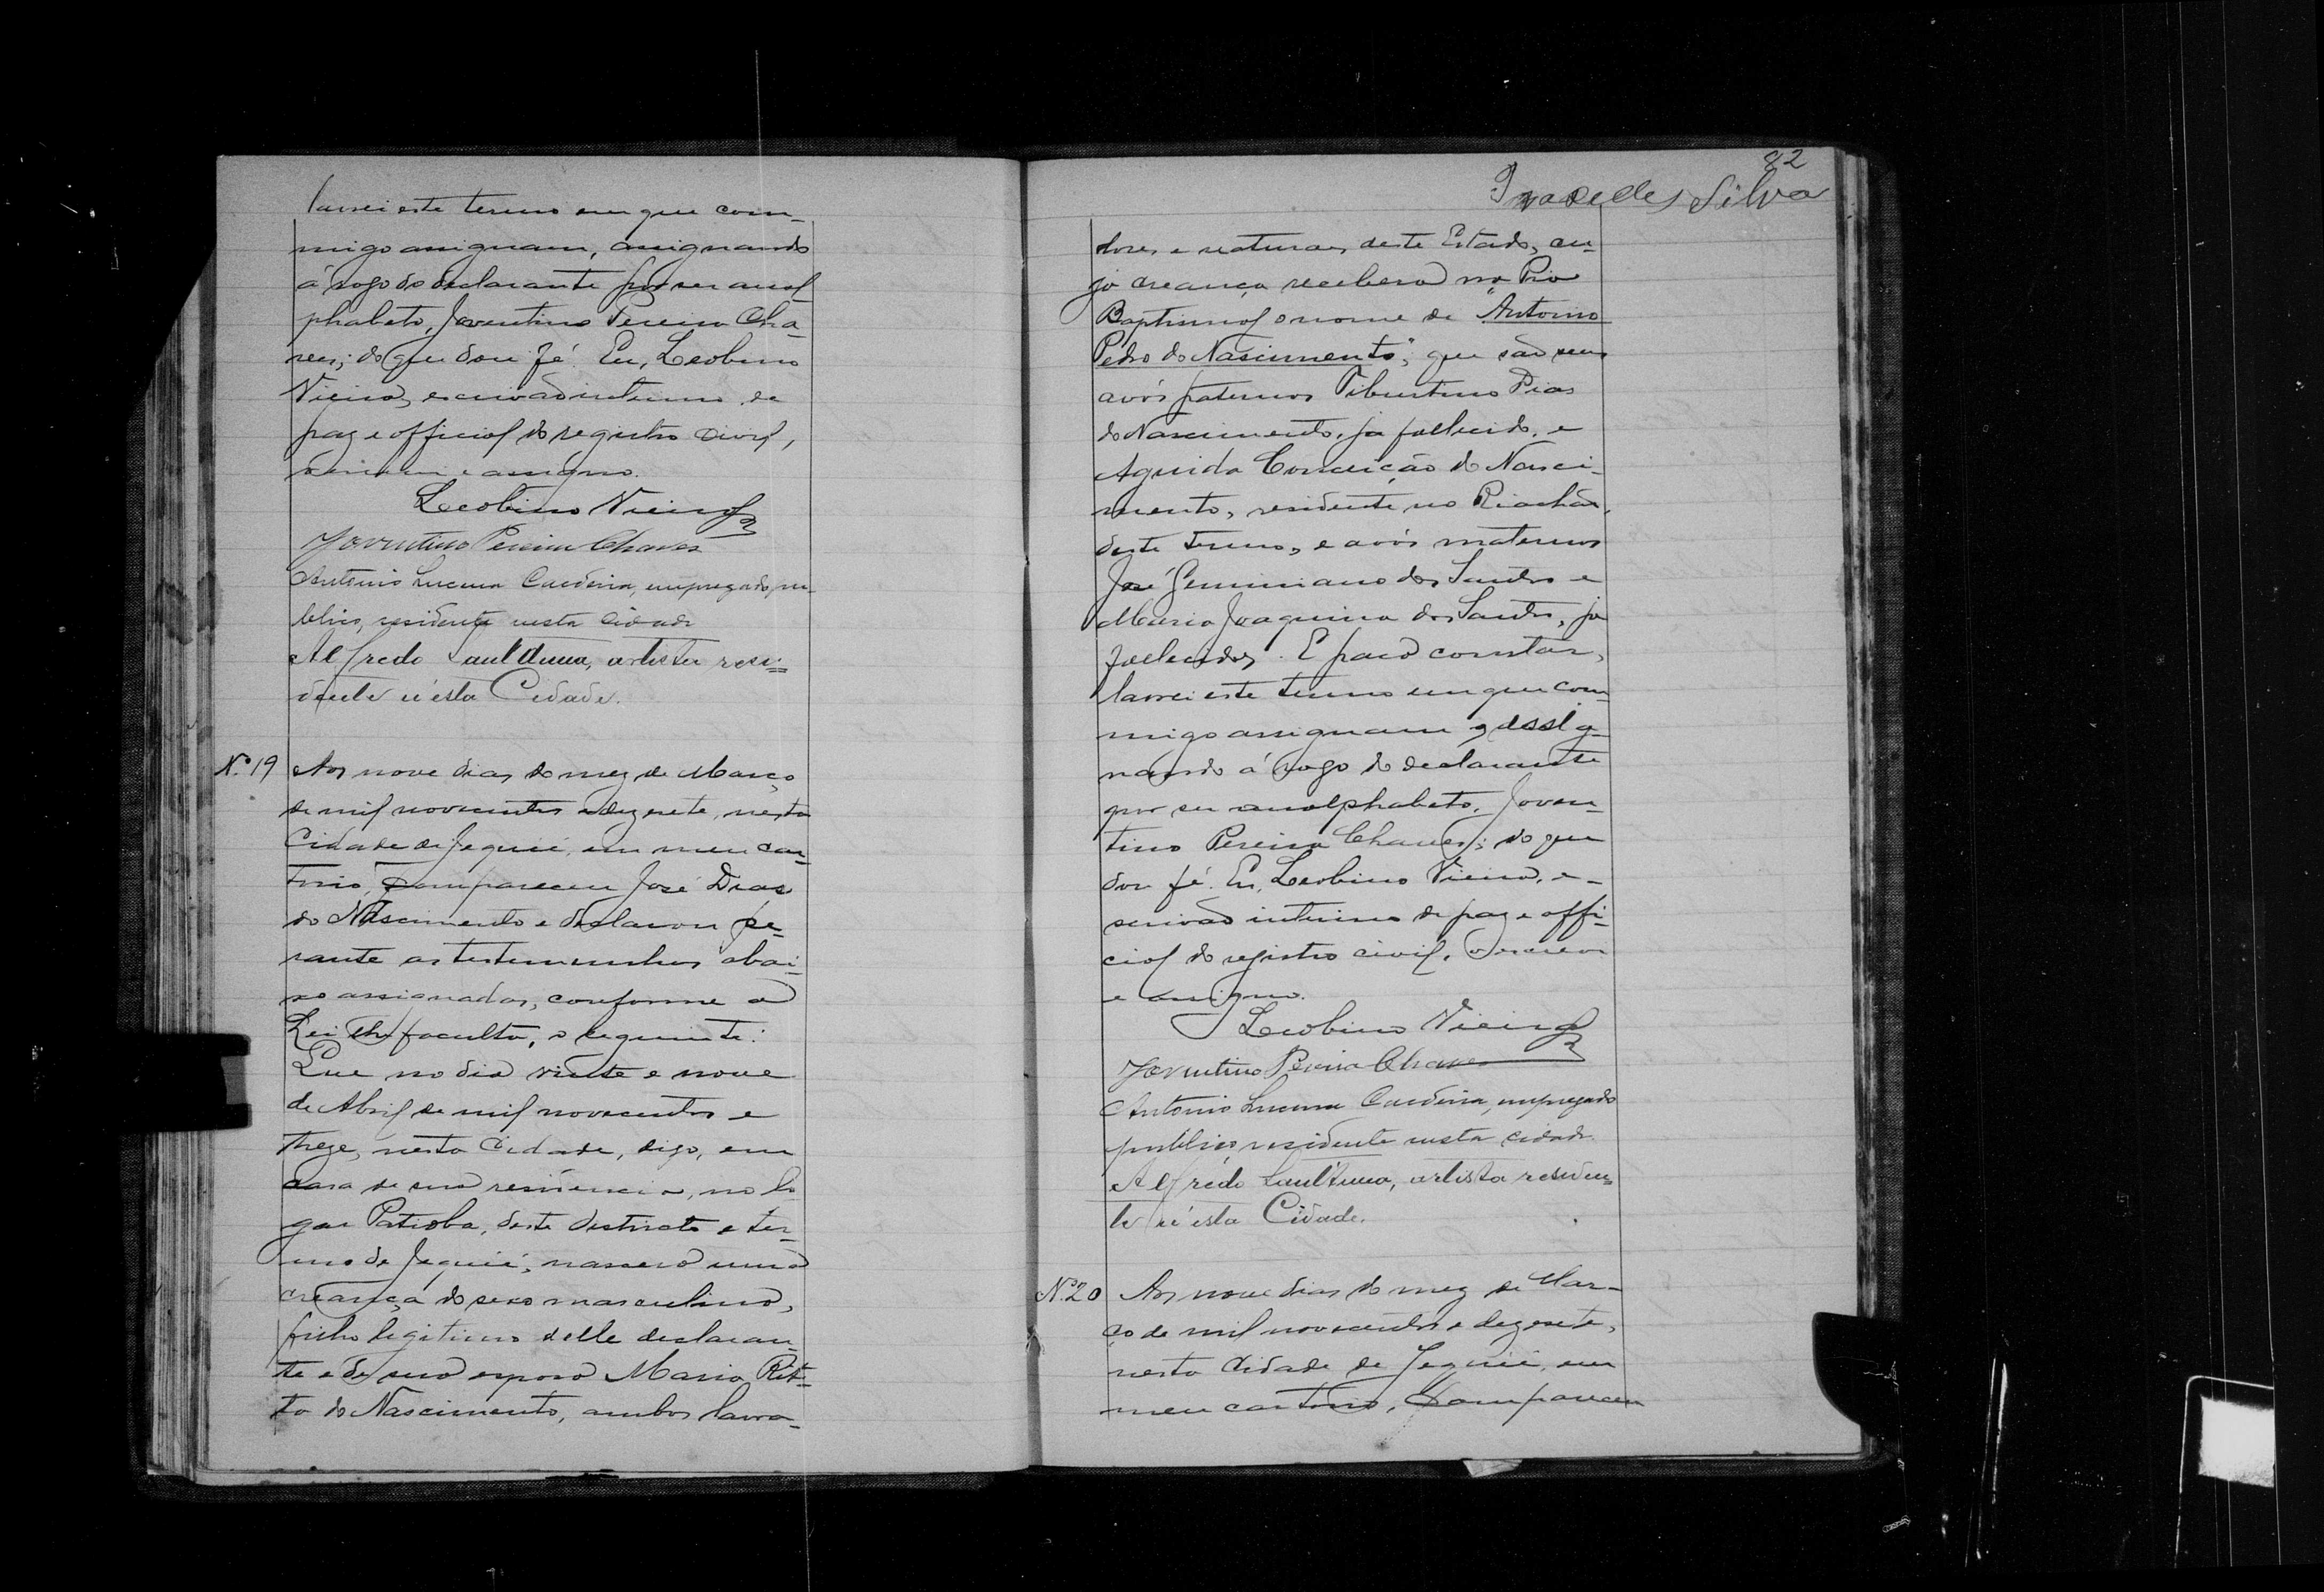 lavrei este termo em que com-
migo assignam, assignando
á rogo do declarante por ser anal-
phabeto, Joventino Pereira Cha-
ves; do que dou fé. Eu, Leobino
Vieira, escrivão interino de
paz e official do registro civil,
escrevi e assigno.
Leobino Vieira
Joventino Pereira Chaves
Antonio Lucena Caudeira, empregado pu-
blico, residente nesta cidade
Alfredo artista resi-
dente n'esta Cidade.
Nº 19 Aos nove dias do mez de Março
de mil novecentos e dezesete, nesta
Cidade de Jequié, em meu car-
torio, compareceu José Dias
do Nascimento e declarou pe-
rante as testemunhas abai-
xo assignadas, conforme a
Lei lhe faculta, o seguinte:
Que no dia vinte e nove
de Abril de mil novecentos e
treze, nesta Cidade, digo, em
casa de sua residencia, no lo-
gar Patioba, deste districto e ter-
mo de Jequié, nasceu uma
creança do sexo masculino,
filho legitimo delle declaran-
te e de sua esposa Maria Rit-
ta do Nascimento, ambos lavra-
82
Silva
dores e naturaes deste Estado, cu-
ja creança recebera na Pia
Baptismal o nome de "Antonio
Pedro do Nascimento", que são seus
avós paternos Tiburtino Dias
do Nascimento, já fallecido, e
Aguida Conceição do Nasci-
mento, residente no Riachão,
deste termo, e avós maternos
José Geminiano dos Santos e
Maria Joaquina dos Santos, já
fallecidos. E para constar,
lavrei este termo em que com-
migo assignam, assig-
nando á rogo do declarante
por ser analphabeto, Joven-
tino Pereira Chaves; do que
dou fé. Eu, Leobino Vieira, e-
scrivão interino de paz e offi-
cial do registro civil, o escrevi
e assigno.
Leobino Vieira
Joventino Pereira Chaves
Antonio Lucena Caudeira, empregado
publico, residente nesta cidade.
Alfredo artista residen-
te n'esta Cidade.
Nº 20 Aos nove dias do mez de Mar-
ço de mil novecentos e dezesete,
nesta Cidade de Jequié, em
meu cartorio, compareceu